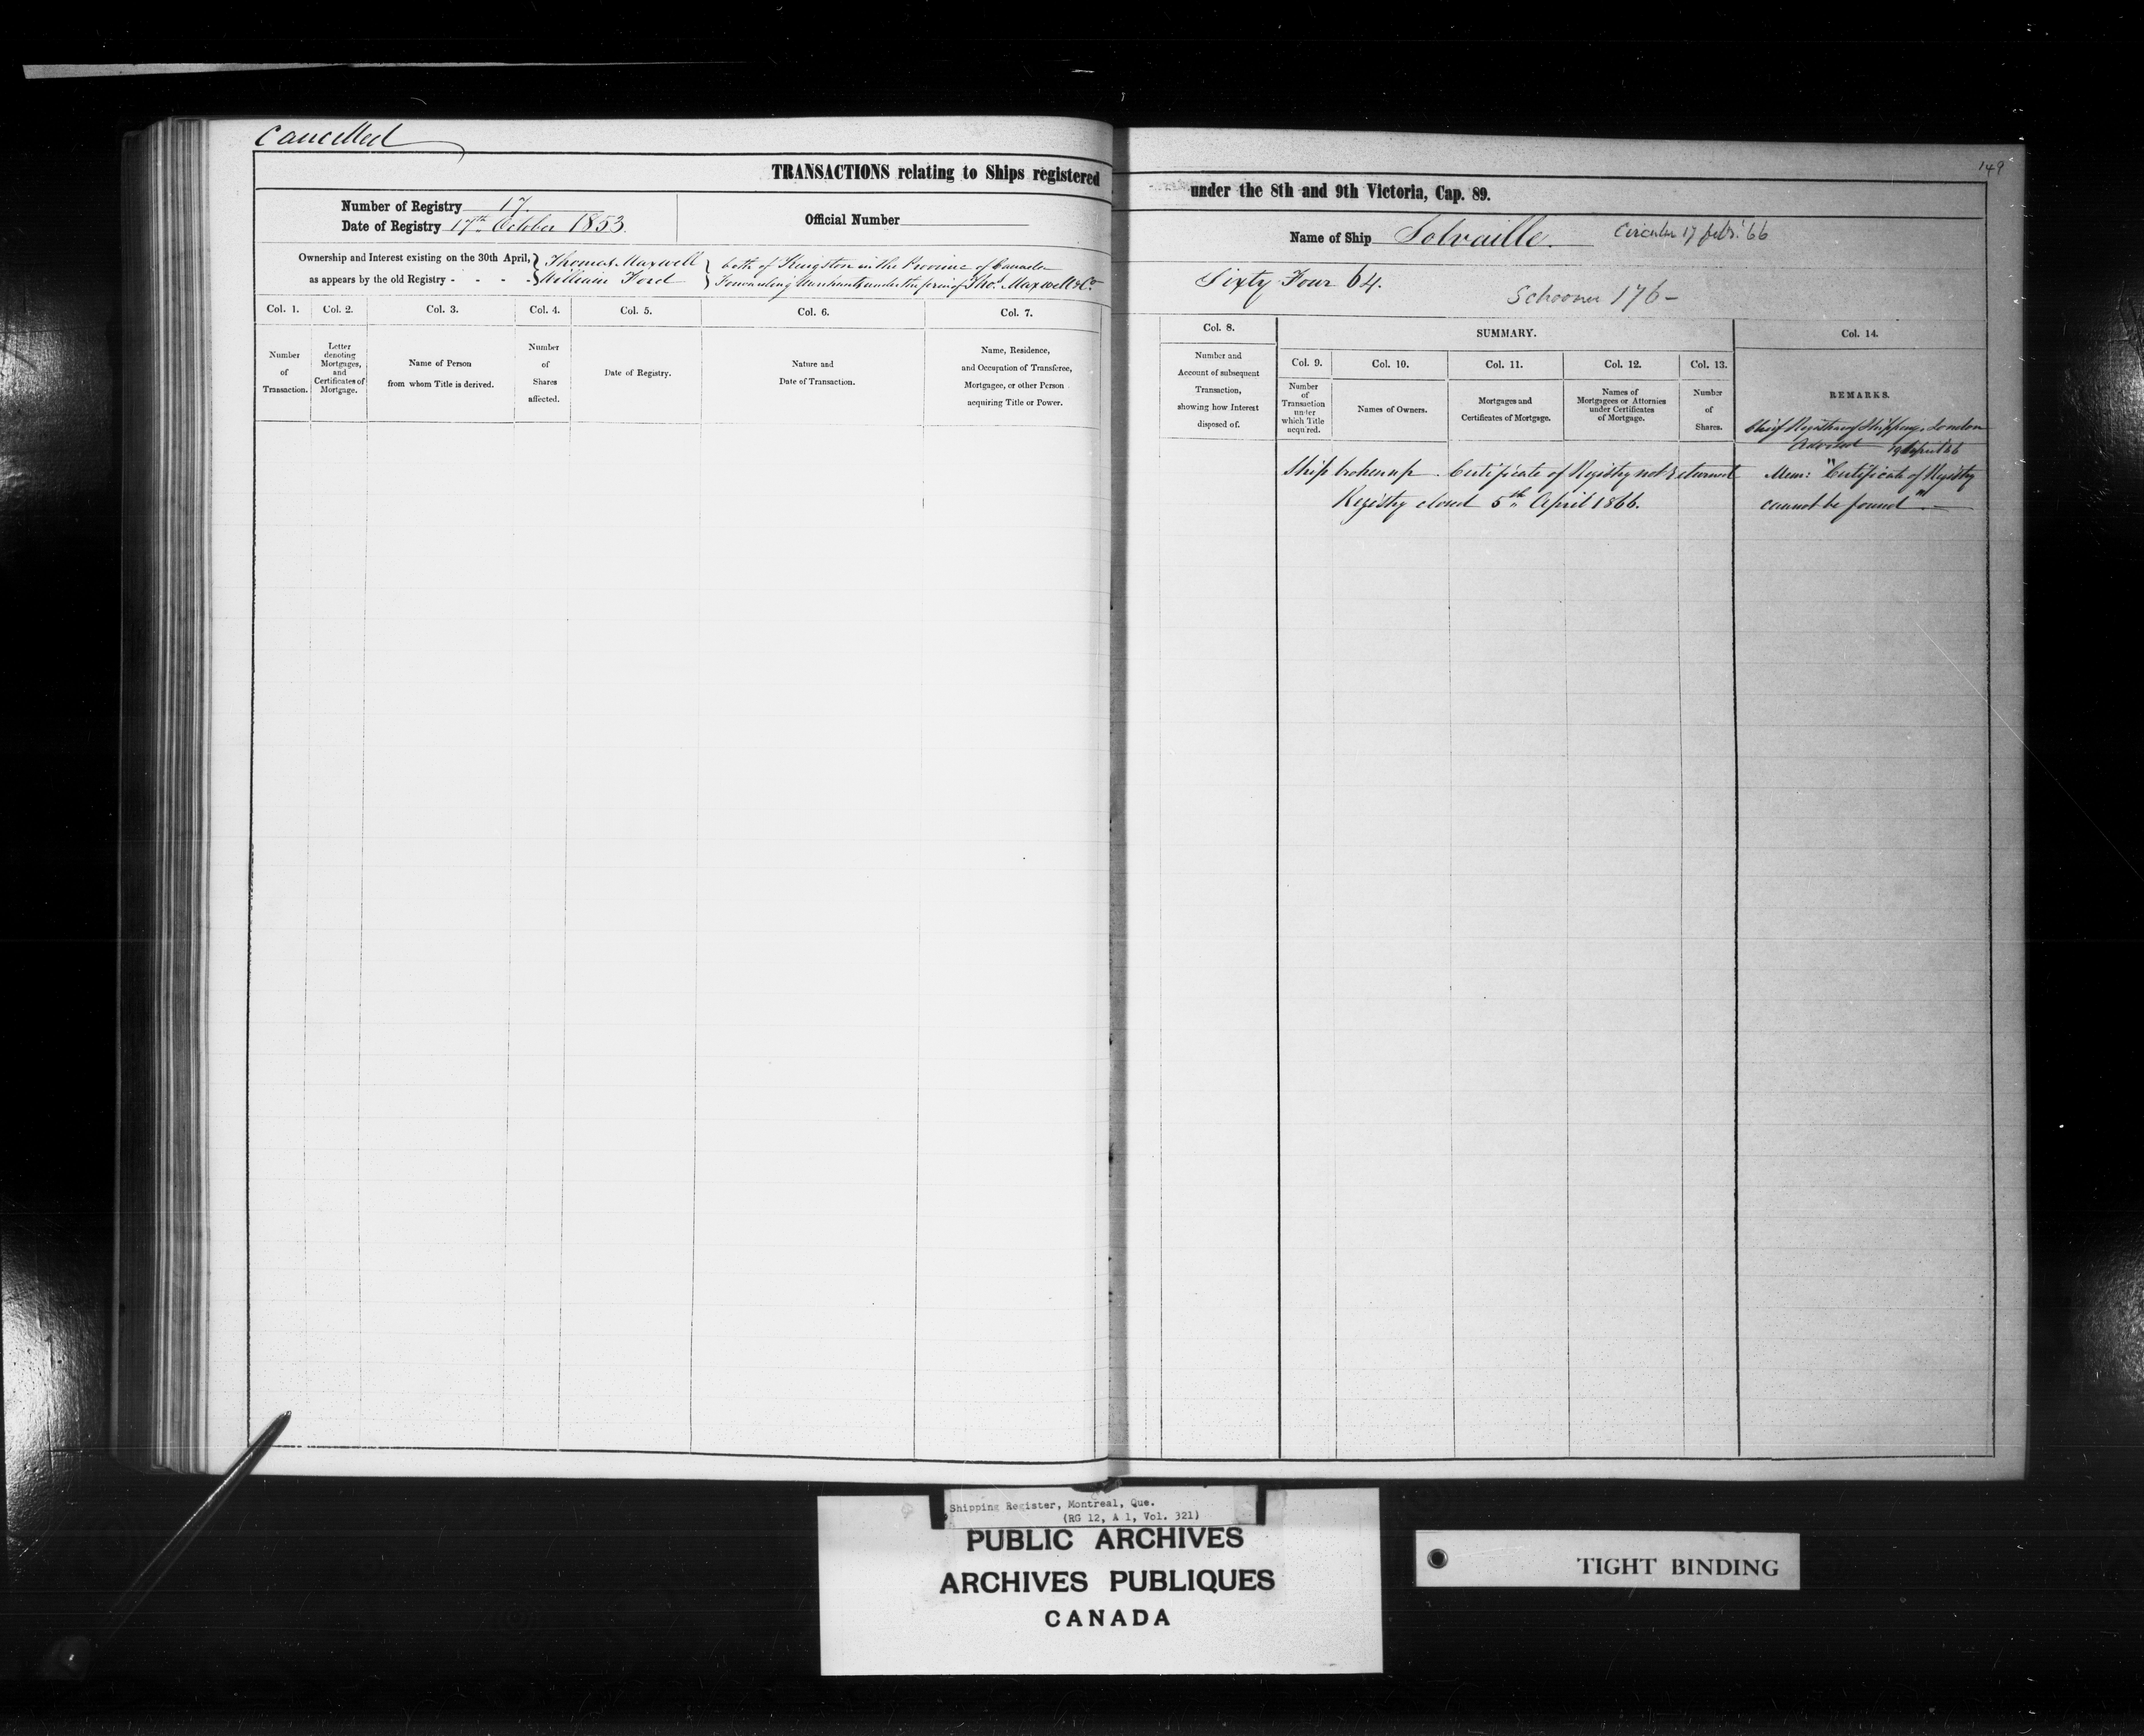 Cancelled
149
TRANSACTIONS relating to Ships registered under the 8th and 9th Victoria, Cap. 89.
Number of Registry 17.
Date of Registry 17th October 1853.
Official Number
Name of Ship Solvaille. Circular 17 feb: '66
Ownership and Interest existing on the 30th April, } Thomas Maxwell } both of Kingston in the Province of Canada
as appears by the old Registry - - - - } William Ford } Forwarding Merchants under the firm of Tho.s Maxwell & Co.
Sixty Four 64.
Schooner 176 -
Col. 1.
Number
of
Transaction.
Col. 2.
Letter
denoting
Mortgages,
and
Certificates of
Mortgage.
Col. 3.
Name of Person
from whom Title is derived.
Col. 4.
Number
of
Shares
affected.
Col. 5.
Date of Registry.
Col. 6.
Nature and
Date of Transaction.
Col. 7.
Name, Residence,
and Occupation of Transferee,
Mortgagee, or other Person
acquiring Title or Power.
Col. 8.
Number and
Account of subsequent
Transaction,
showing how Interest
disposed of.
SUMMARY.
Col. 9.
Number
of
Transaction
under
which Title
acquired.
Col. 10.
Names of Owners.
Col. 11.
Mortgages and
Certificates of Mortgage.
Col. 12.
Names of
Mortgagees or Attornies
under Certificates
of Mortgage.
Col. 13.
Number
of
Shares.
Col. 14.
REMARKS.
Chief Registrar of Shipping, London
Advised 19 April '66
Ship broken up. Certificate of Registry not returned
Registry closed 5th April 1866.
Mem: "Certificate of Registry
cannot be found" -
Shipping Register, Montreal, Que.
(RG 12, A 1, Vol. 321)
PUBLIC ARCHIVES
ARCHIVES PUBLIQUES
CANADA
TIGHT BINDING